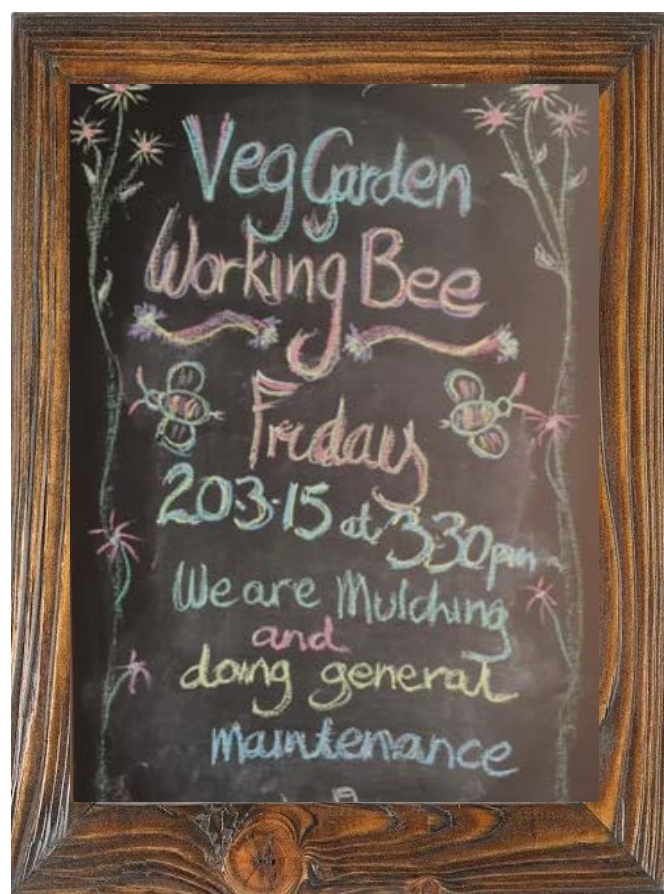 Veg Garden
Working Bee
Friday
20.3.15 at 3.30pm
We are Mulching
and
doing general
maintenance